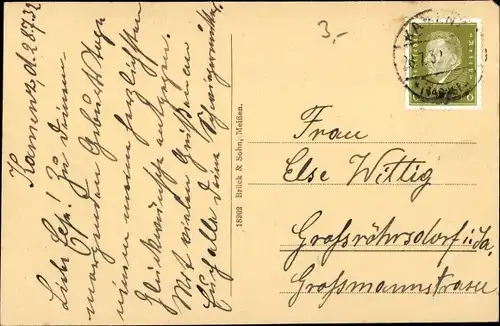 Kamenz, d. 28.7.32
Liebe Else! Zu Deinem
morgenden Geburtstage
nimm meine herzlichsten
Glückwünsche entgegen.
Mit vielen Grüßen an
Euch alle Deine Schwiegermutter
18202 Brück & Sohn, Meißen.
3,-
KAMENZ
(SACHSEN)
6
Frau
Else Wittig
Großröhrsdorf i. Sa.
Großmannstrasse